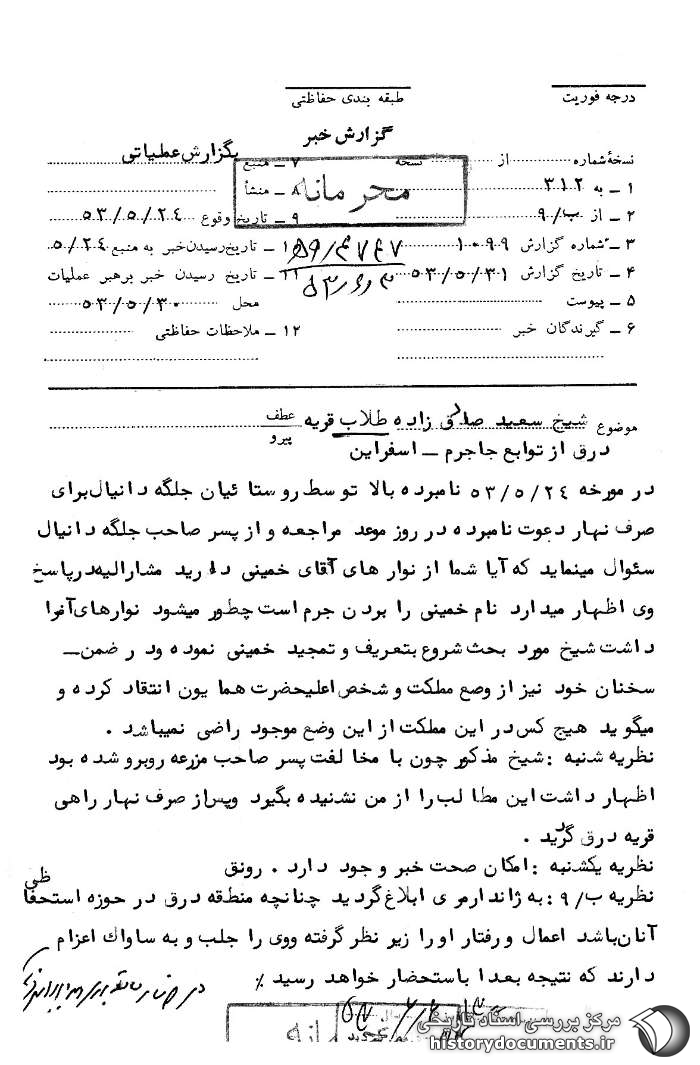 درجه فوریت
طبقه بندی حفاظتی
گزارش خبر
بگزارش عملیاتی
نسخهٔ شماره از نسخه
۷ ـ منبع
محرمانه
۱ ـ به ۳۱۲
۸ ـ منشأ
۲ ـ از ب/۹
۹ ـ تاریخ وقوع ۵۳/۵/۲۴
۳ ـ شماره گزارش ۱۰۹۹
تاریخ رسیدن خبر به منبع ۵/۲۴
۴ ـ تاریخ گزارش ۵۳/۵/۳۱
۱۱ ـ تاریخ رسیدن خبر برهبر عملیات
۵ ـ پیوست
محل ۵۳/۵/۳۰
۶ ـ گیرندگان خبر
۱۲ ـ ملاحظات حفاظتی
موضوع شیخ سعید صادق زاده طلاب قریه
عطف
پیرو
درق از توابع جاجرم ـ اسفراین
در مورخه ۵۳/۵/۲۴ نامبرده بالا توسط روستائیان جلگه دانیال برای
صرف نهار دعوت نامبرده در روز موعد مراجعه و از پسر صاحب جلگه دانیال
سئوال مینماید که آیا شما از نوار های آقای خمینی دارید مشارالیه درپاسخ
وی اظهار میدارد نام خمینی را بردن جرم است چطور میشود نوارهای آنرا
داشت شیخ مورد بحث شروع بتعریف و تمجید خمینی نموده ود ر ضمن ـ
سخنان خود نیز از وضع مملکت و شخص اعلیحضرت همایون انتقاد کرده و
میگوید هیچ کس در این مملکت از این وضع موجود راضی نمیباشد .
نظریه شنبه : شیخ مذکور چون با مخالفت پسر صاحب مزرعه روبرو شده بود
اظهار داشت این مطالب را از من نشنیده بگیرد وپس از صرف نهار راهی
قریه درق گردید .
نظریه یکشنبه : امکان صحت خبر وجود دارد . رونق
نظریه ب/۹ : به ژاندارمری ابلاغ گردید چنانچه منطقه درق در حوزه استحفاظی
آنان باشد اعمال ورفتار اورا زیر نظر گرفته ووی را جلب و به ساواک اعزام
دارند که نتیجه بعدا باستحضار خواهد رسید ٪
مرکز بررسی اسناد تاریخی
historydocuments.ir